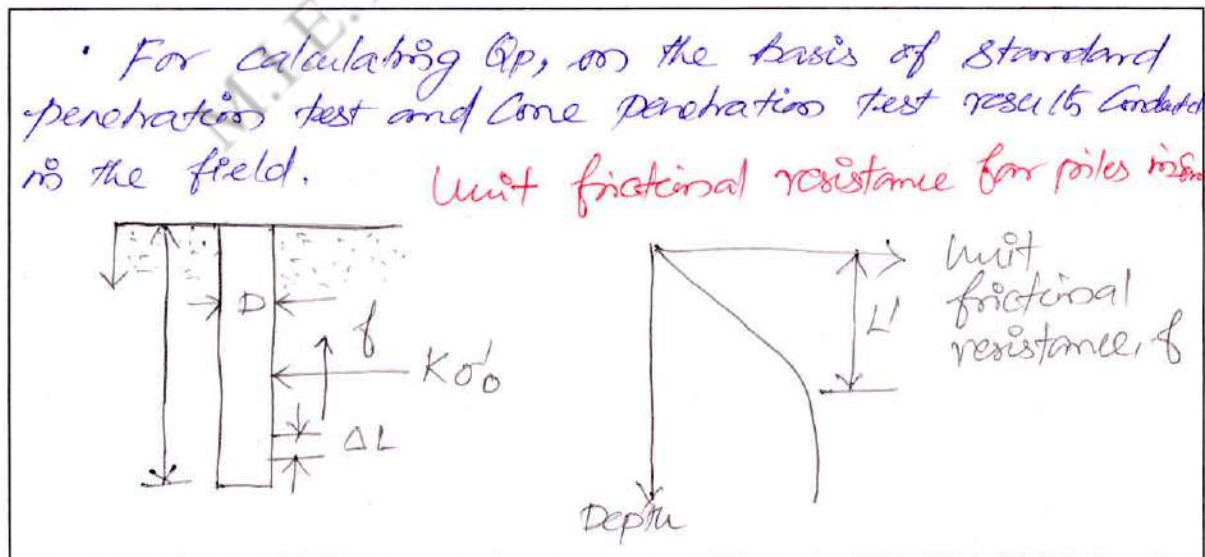 M.I.E.
· For calculating Qp, on the basis of standard
penetration test and Cone penetration test results Conducted
in the field.
Unit frictional resistance for piles in
D
f
Kσ'o
ΔL
L'
Unit
frictional
resistance, f
Depth